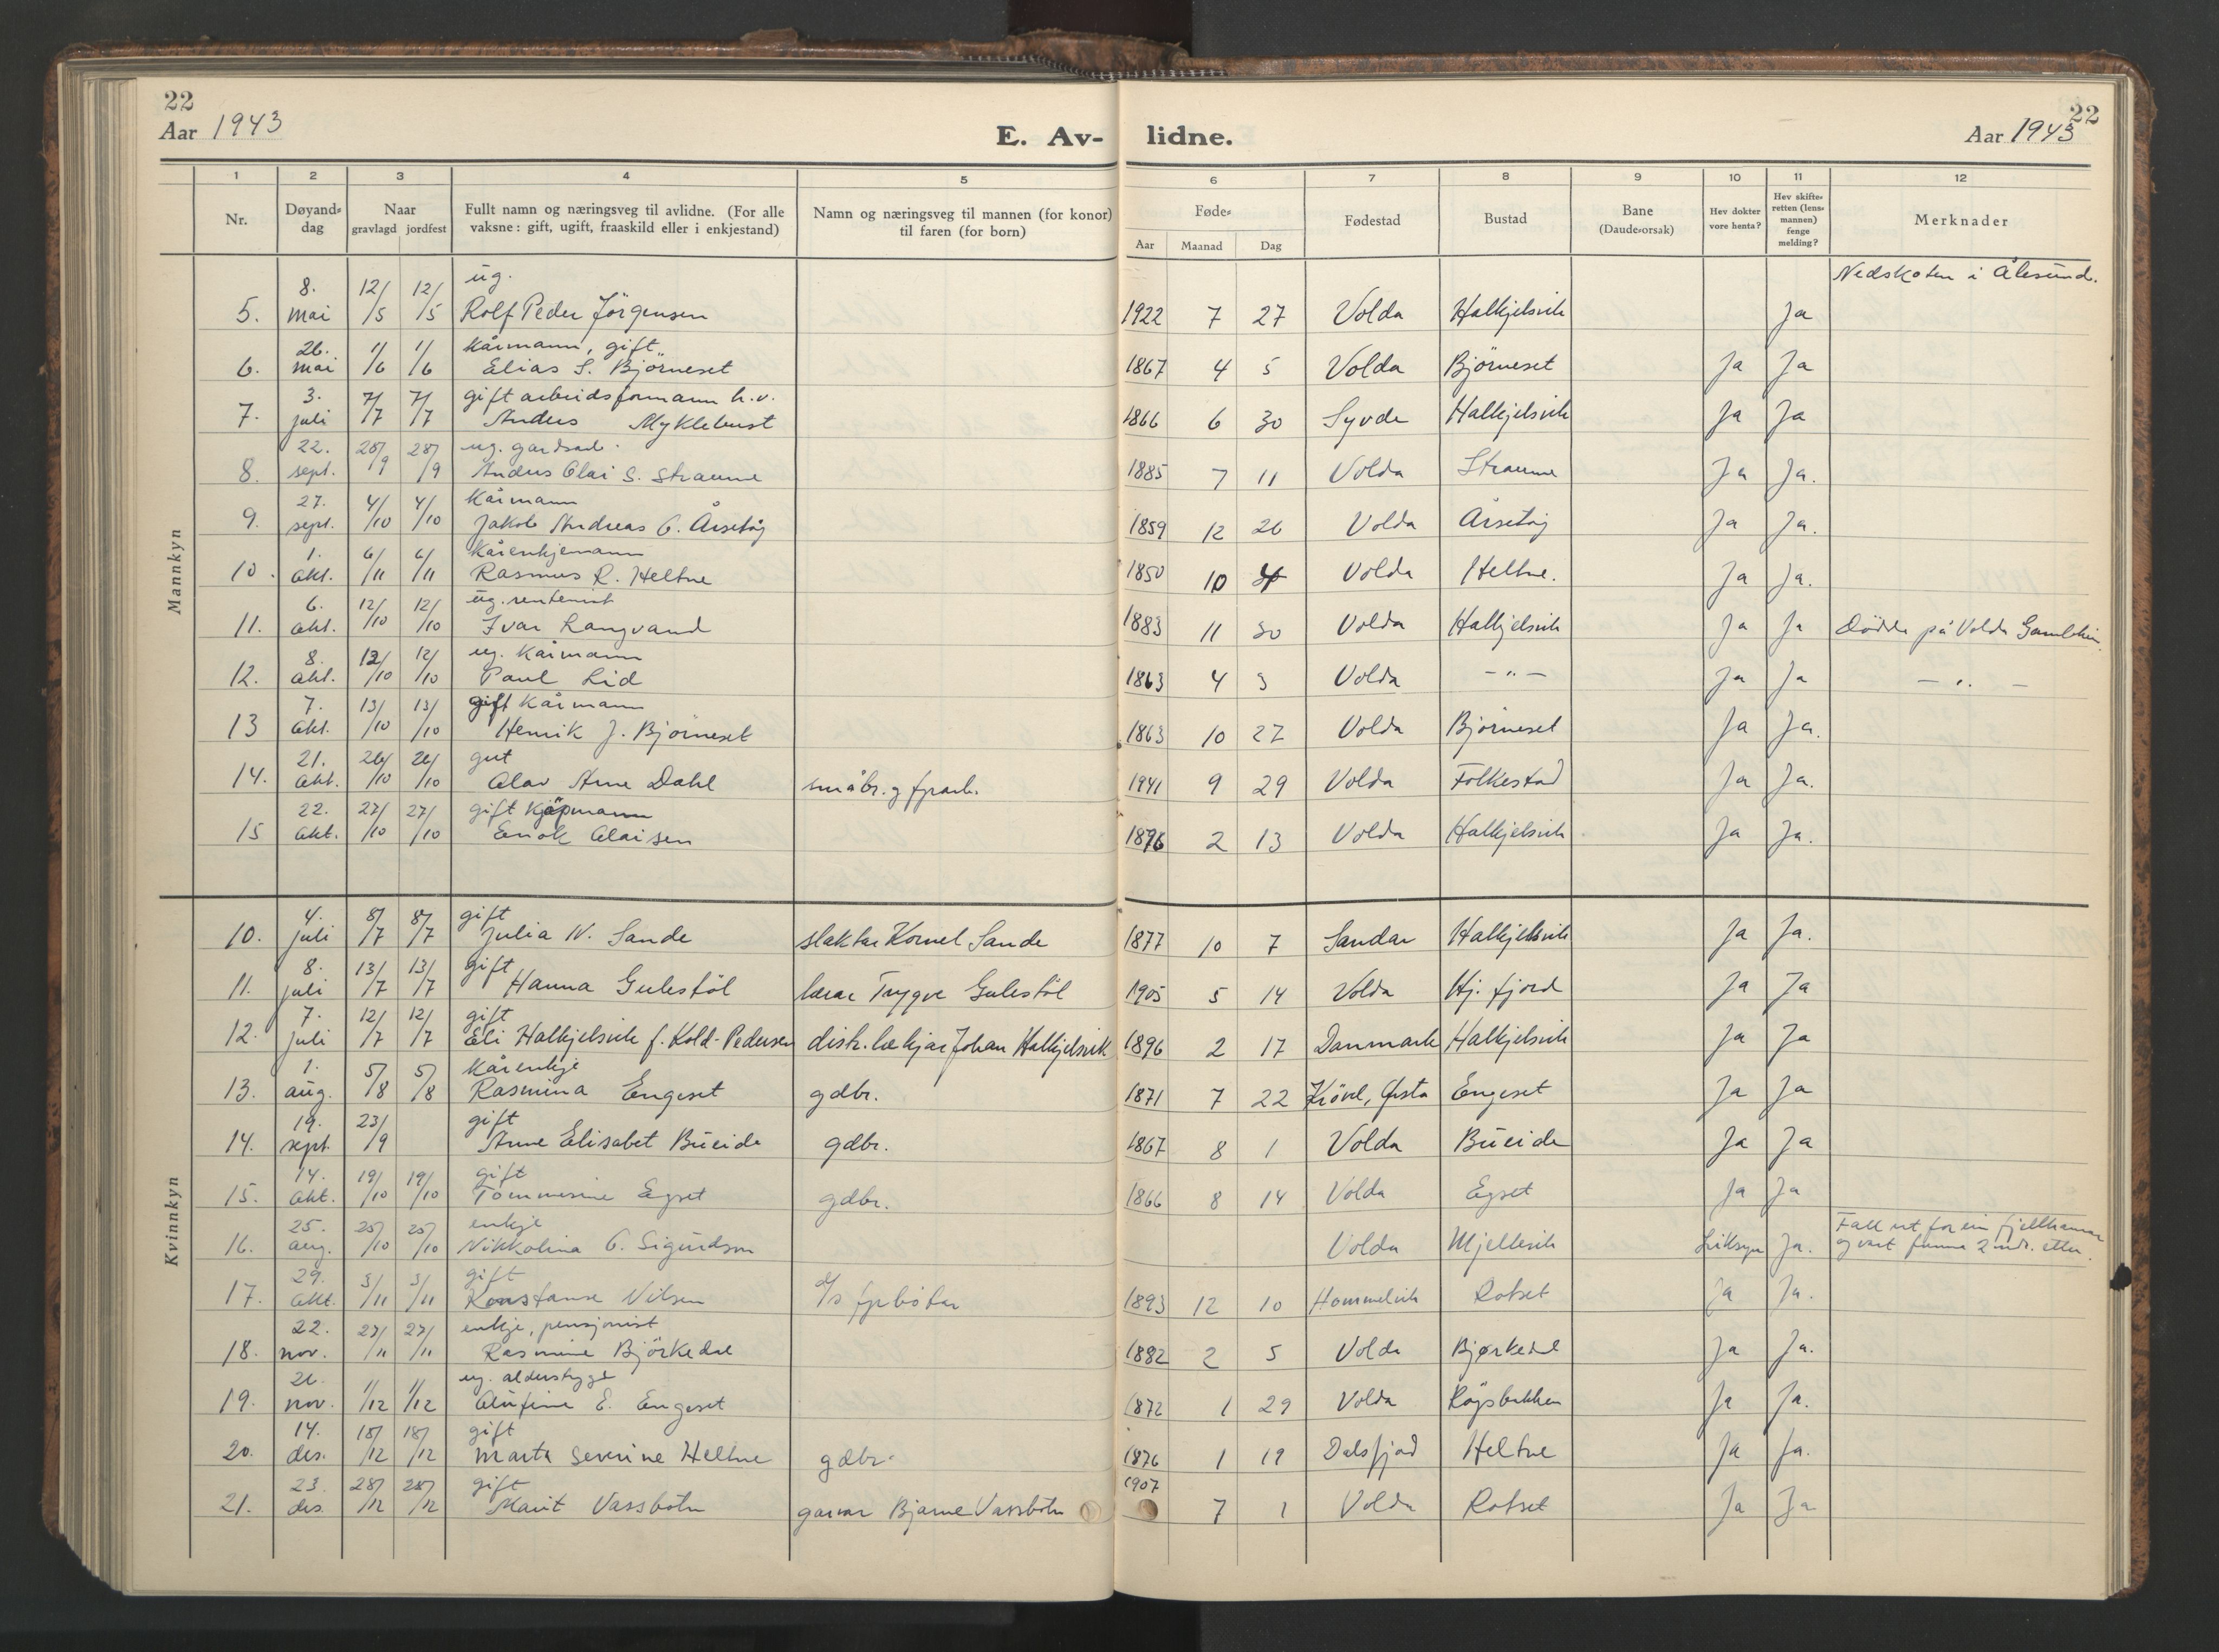 22
Aar 1943
E. Av-
lidne.
22
Aar 1943
1 2 3 4 5 6 7 8 9 10 11 12
Nr.
Døyand-
dag
Naar
gravlagd jordfest
Fullt namn og næringsveg til avlidne. (For alle
vaksne: gift, ugift, fraaskild eller i enkjestand)
Namn og næringsveg til mannen (for konor)
til faren (for born)
Føde-
Aar Maanad Dag
Fødestad
Bustad
Bane
(Daude-orsak)
Hev dokter
vore henta?
Hev skifte-
retten (lens-
mannen)
fenge
melding?
Merknader
Mannkyn
8. 12/ 12/ ug. Nedskoten i Ålesund.
5. mai /5 /5 Rolf Peder Jörgensen 1922 7 27 Volda Halkjelsvik Ja
26. 1/ 1/ Kårmann, gift
6. mai /6 /6 Elias S. Björneset 1867 4 5 Volda Björneset Ja Ja
3. 7/ 7/ gift arbeidsformann h.v.
7. juli /7 /7 Anders Myklebust 1866 6 30 Syvde Halkjelsvik Ja Ja
22. 28/ 28/ ug. gardsarb.
8. sept. /9 /9 Anders Olai S. Straume 1885 7 11 Volda Straume Ja Ja.
27. 4/ 4/ Kårmann
9. sept. /10 /10 Jakob Andreas O. Årsetöy 1859 12 26 Volda Årsetöy Ja Ja.
1. 6/ 6/ Kårenkjemann
10. okt. /11 /11 Rasmus R. Heltne 1850 10 Volda Heltne. Ja Ja.
6. 12/ 12/ ug. rentenist
11. okt. /10 /10 Ivar Langvand 1883 11 30 Volda Halkjelsvik Ja Ja Dödde på Volda Gamleheim.
8. 12/ 12/ ug. Kårmann
12. okt. /10 /10 Paul Lid 1863 4 3 Volda —"— Ja Ja —"—
7. 13/ 13/ gift Kårmann
13 okt. /10 /10 Henrik J. Björneset 1863 10 27 Volda Björneset Ja Ja.
21. 26/ 26/ gut
14. okt. /10 /10 Olav Arne Dahl småbr. og fprarb. 1941 9 29 Volda Folkestad Ja Ja.
22. 27/ 27/ gift Kjöpmann
15 okt. /10 /10 Enok Olaisen 1896 2 13 Volda Halkjelsvik Ja Ja.
Kvinnkyn
4. 8/ 8/ gift
10. juli /7 /7 Julia N. Sande slaktar Kornel Sande 1877 10 7 Sandar Halkjelsvik Ja Ja.
8. 13/ 13/ gift
11. juli /7 /7 Hanna Gulestöl lærar Trygve Gulestöl 1905 5 14 Volda Hj. fjord Ja Ja
7. 12/ 12/ gift
12. juli /7 /7 Eli Halkjelsvik f. Kold-Pedersen distr. lækjar Johan Halkjelsvik 1896 2 17 Danmark Halkjelsvik Ja Ja
1. 5/ 5/ Kårenkje
13. aug. /8 /8 Rasmina Engeset gdbr. 1871 7 22 Ørsta Engeset Ja Ja
19. 23/ gift
14. sept. /9 Anne Elisabet Bueide gdbr. 1867 8 1 Volda Bueide Ja Ja
14. 19/ 19/ gift
15. okt. /10 /10 Tommesine Egset gdbr. 1866 8 14 Volda Egset Ja Ja
25. 25/ 25/ enkje Fall ut for ein fjellhamar
16. aug. /10 /10 Nikkolina O. Sigurdson Volda Mjellevik Liksyn Ja. og vart funne 2 mdr. etter.
29. 3/ 3/ gift
17. okt. /11 /11 Konstanse Nilsen 1893 12 10 Hommelvik Rotset Ja Ja.
22. 27/ 27/ enkje, pensjonist
18. nov. /11 /11 Rasmine Björkedal 1882 2 5 Volda Bjørkedal Ja Ja.
26. 1/ 1/ ug. alderstrygd
19. nov. /12 /12 Olufine E. Engeset 1872 1 29 Volda Röysbakken Ja Ja.
14. 18/ 18/ gift
20. des. /12 /12 Marta Severine Heltne gdbr. 1876 1 19 Dalsfjord Heltne Ja Ja.
23. 28/ 28/ gift 1907
21. des. /12 /12 Marit Vassbotn garvar Bjarne Vassbotn 7 1 Volda Rotset Ja Ja